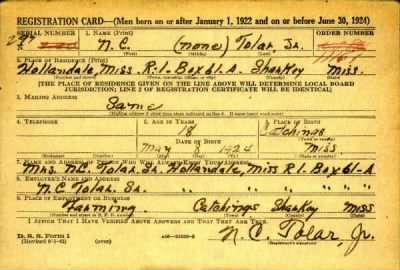 REGISTRATION CARD—(Men born on or after January 1, 1922 and on or before June 30, 1924)
SERIAL NUMBER 1. NAME (Print) ORDER NUMBER
N. C. (none) Tolar, Jr.
2. PLACE OF RESIDENCE (Print)
Hollandale, Miss. R. 1. Box 61-A Sharkey Miss.
[THE PLACE OF RESIDENCE GIVEN ON THE LINE ABOVE WILL DETERMINE LOCAL BOARD
JURISDICTION; LINE 2 OF REGISTRATION CERTIFICATE WILL BE IDENTICAL]
3. MAILING ADDRESS
Same
4. TELEPHONE 5. AGE IN YEARS 6. PLACE OF BIRTH
18 Catchings
DATE OF BIRTH
May 8 1924 Miss
7. NAME AND ADDRESS OF PERSON WHO WILL ALWAYS KNOW YOUR ADDRESS
Mrs. N.C. Tolar, Sr. Hollandale, Miss R 1. Box 61-A
8. EMPLOYER'S NAME AND ADDRESS
N C Tolar, Sr. " " " " "
9. PLACE OF EMPLOYMENT OR BUSINESS
Farming Catchings Sharkey Miss
I AFFIRM THAT I HAVE VERIFIED ABOVE ANSWERS AND THAT THEY ARE TRUE.
D. S. S. Form 1
(Revised 6-9-42) (over)
N. C. Tolar, Jr.
(Registrant's signature)